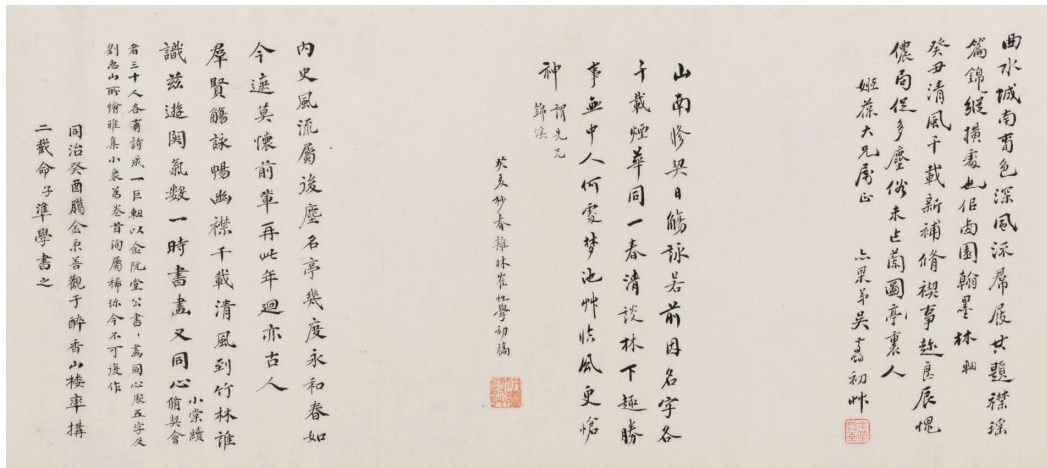 曲水城南霽色深風流屐屐共題襟瑤
篇錦縱橫處也作西園翰墨林軸
癸丑清風千載新補脩禊事趁良辰愧
儂局促多塵俗未占蘭圖亭裏人
姬葆大兄屬正
亦槑弟吳初艸
山南修禊日觴詠若前因名字各
千載煙華同一春清談林下趣勝
事無中人何處梦池艸临風更愴
神謂先兄錦溪
癸亥抄春雞林崔性學初稿
內史風流屬後塵名亭幾度永和春如
今遮莫懷前輩再此年廻亦古人
羣賢觴詠暢幽襟千載清風到竹林誰
識茲遊関氣数一時書畫又同心小棠續脩契會
者三十人各有詩成一巨軸以金阮堂公書為同心殿五字及
劉惠山所繪雅集小景葛卷首洵屬稀珎今不可復作
同治癸酉臘金東善觀于醉香山樓率搆
二截命子準學書之